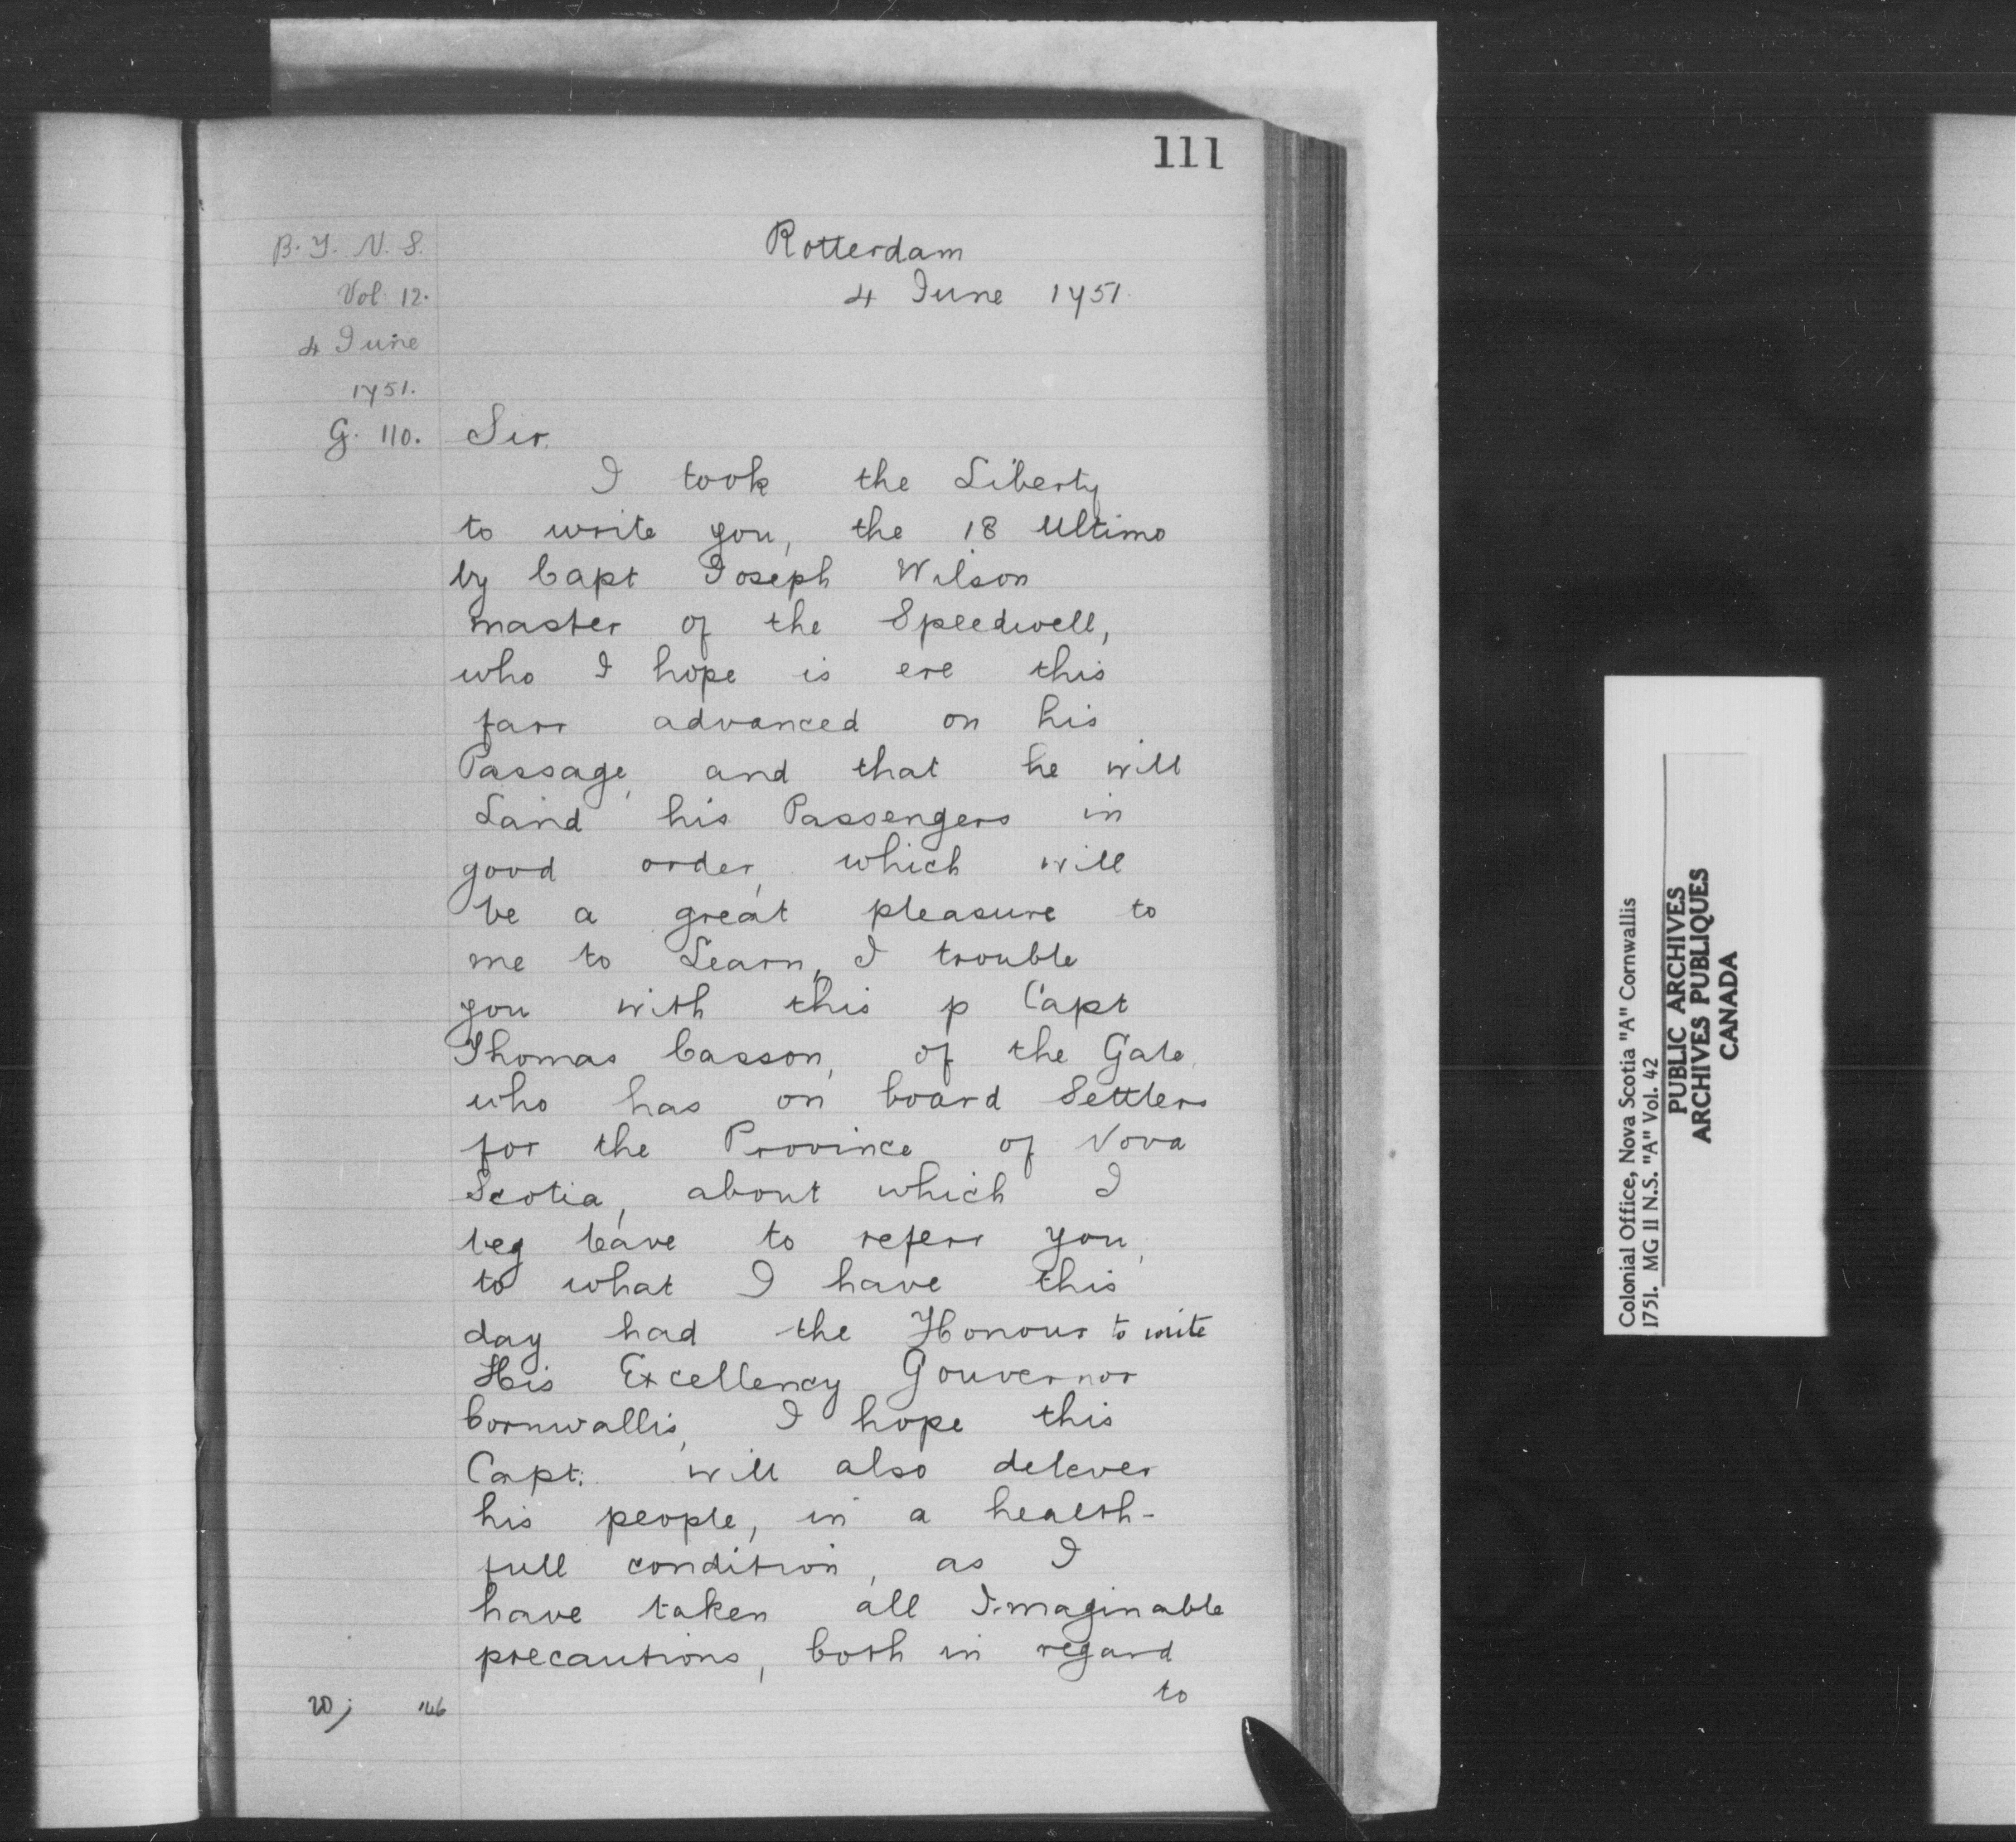 111
B. T. N. S.
Vol 12.
4 June
1751.
G. 110.
Rotterdam
4 June 1751.
Sir.
I took the Liberty
to write you, the 18 Ultimo
by Capt Joseph Wilson
master of the Speedwell,
who I hope is ere this
farr advanced on his
Passage, and that he will
Land his Passengers in
good order, which will
be a great pleasure to
me to Learn, I trouble
you with this p Capt
Thomas Casson, of the Gale,
who has on board Settlers
for the Province of Nova
Scotia, about which I
beg leave to referr you,
to what I have this
day had the Honour to write
His Excellency Gouvernor
Cornwallis, I hope this
Capt. will also delever
his people, in a health-
full condition, as I
have taken all Imaginable
precautions, both in regard
to
Colonial Office, Nova Scotia "A" Cornwallis
1751. MG 11 N.S. "A" Vol. 42
PUBLIC ARCHIVES
ARCHIVES PUBLIQUES
CANADA